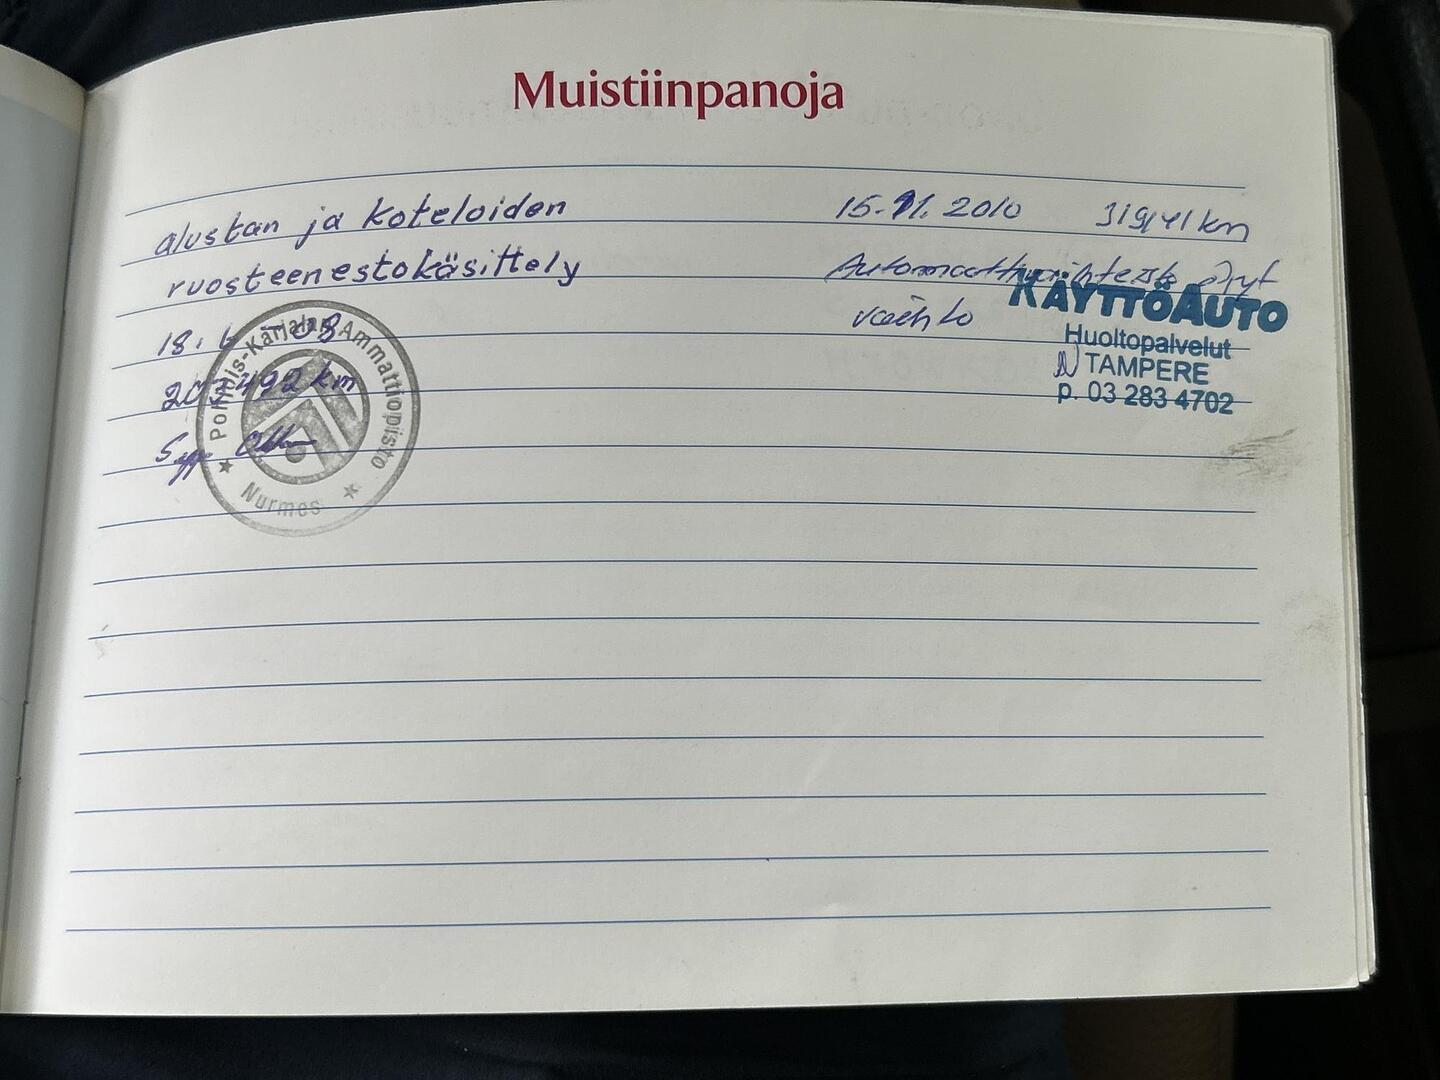 Muistiinpanoja
alustan ja koteloiden
ruosteenestokäsittely
18.6-08
203492 km
Pohjois-Karjalan Ammattiopisto
Nurmes
15.11.2010 319,41 km
Automaattivaihteisto öljyt
vaihto
KÄYTTÖAUTO
Huoltopalvelut
TAMPERE
p. 03 283 4702